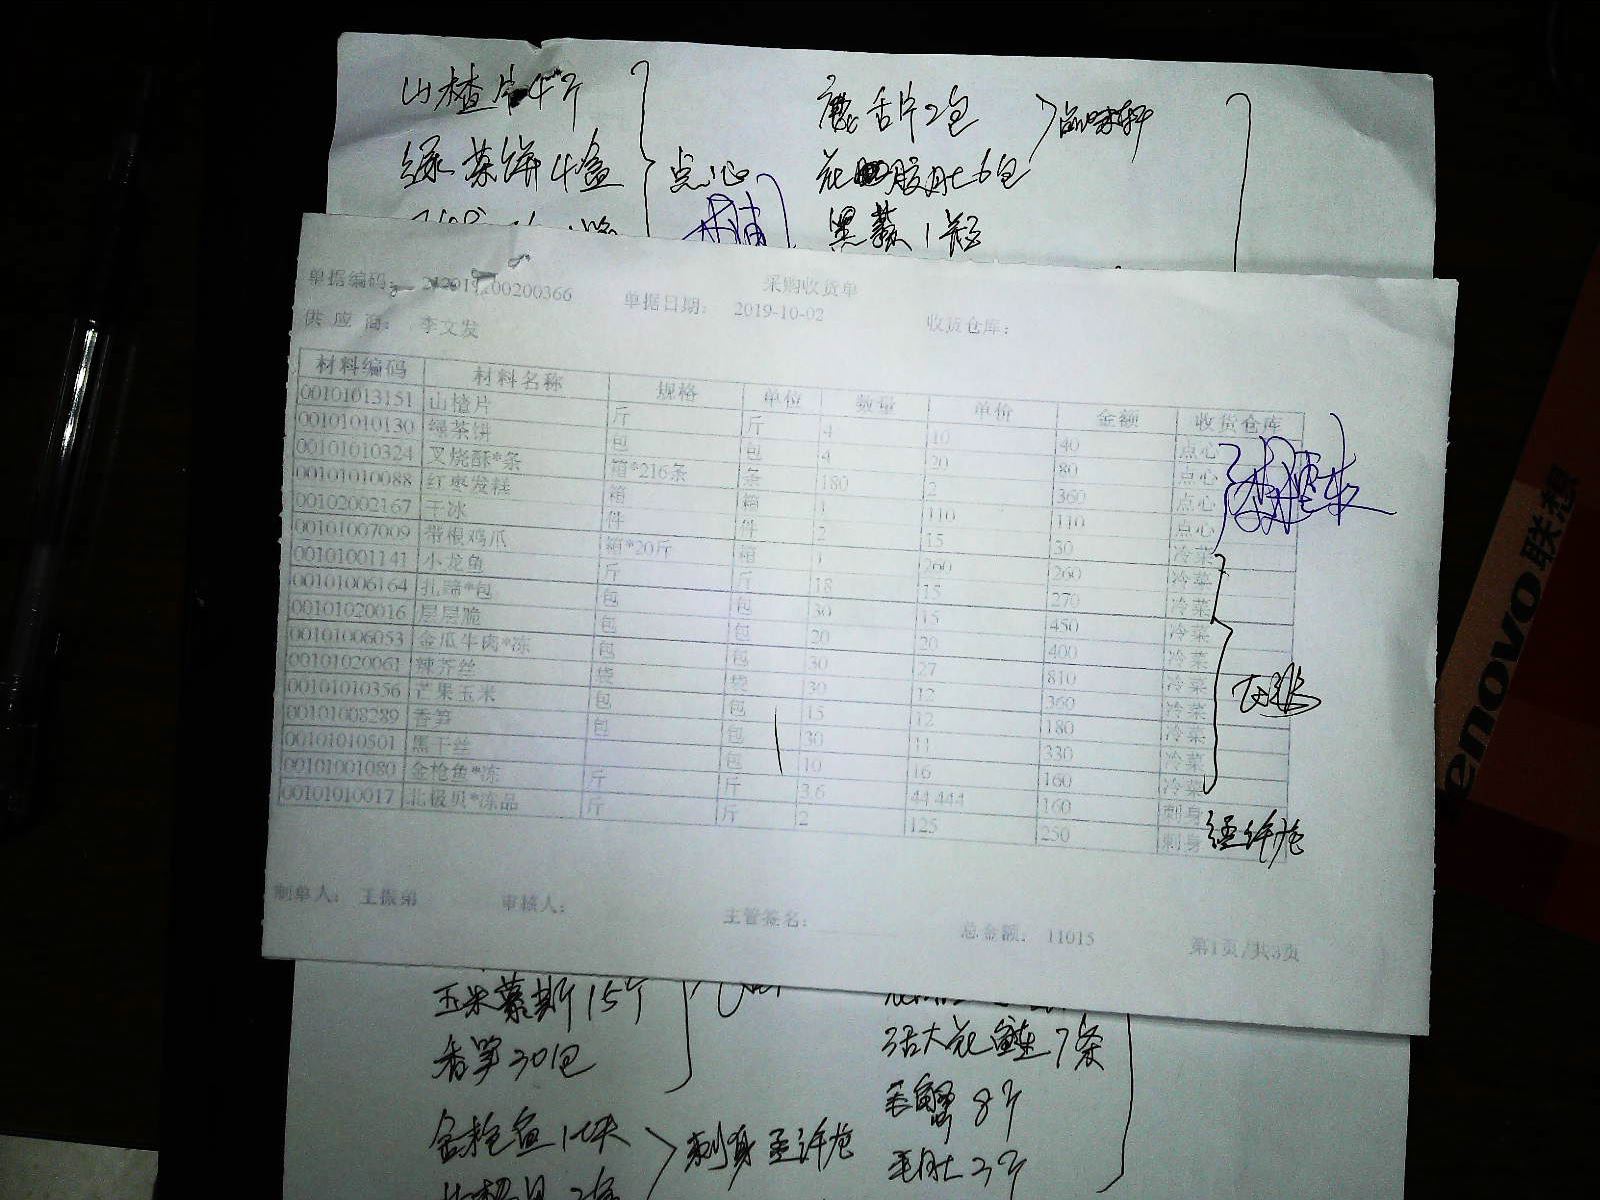 山楂片4斤
绿茶饼4盒
点心
鹿舌片2包
花胶肚6包
品味轩
黑蒜1瓶
采购收货单
单据编码: 00200366 单据日期: 2019-10-02 收货仓库:
供应商: 李文发
材料编码 材料名称 规格 单位 数量 单价 金额 收货仓库
00101013151 山楂片 斤 斤 4 10 40 点心
00101010130 绿茶饼 包 包 4 20 80 点心
00101010324 叉烧酥*条 箱*216条 条 180 2 360 点心
00101010088 红枣发糕 箱 箱 1 110 110 点心
00102002167 干冰 件 件 2 15 30 冷菜
00101007009 带根鸡爪 箱*20斤 箱 1 260 260 冷菜
00101001141 小龙鱼 斤 斤 18 15 270 冷菜
00101006164 扎蹄*包 包 包 30 15 450 冷菜
00101020016 层层脆 包 包 20 20 400 冷菜
00101006053 金瓜牛肉*冻 包 包 30 27 810 冷菜
00101020061 辣芥丝 袋 袋 30 12 360 冷菜
00101010356 芒果玉米 包 包 15 12 180 冷菜
00101008289 香笋 包 包 30 11 330 冷菜
00101010501 黑干丝 包 10 16 160 冷菜
00101001080 金枪鱼*冻 斤 斤 3.6 44.444 160 刺身
00101010017 北极贝*冻品 斤 斤 2 125 250 刺身
制单人: 王振弟 审核人: 主管签名: 总金额: 11015 第1页/共3页
玉米慕斯15斤
香笋30包
金枪鱼1块
刺身
活大花鲢7条
毛蟹8斤
毛肚3斤
lenovo联想